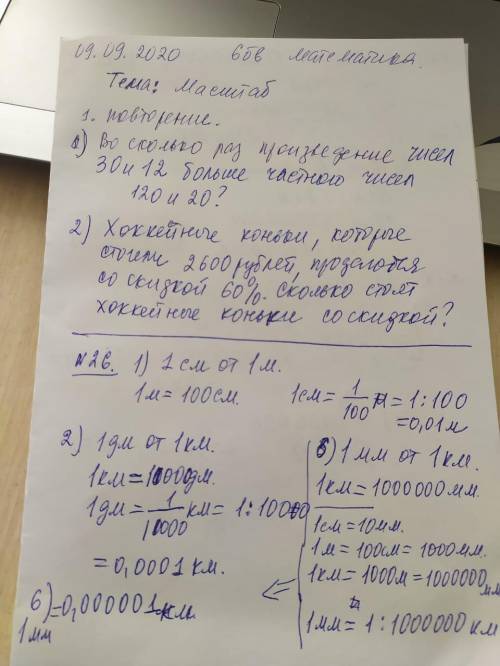 09.09.2020 6бв математика.
Тема: Масштаб
1. повторение.
1) Во сколько раз произведение чисел
30 и 12 больше частного чисел
120 и 20?
2) Хоккейные коньки, которые
стоили 2600 рублей, продаются
со скидкой 60%. Сколько стоят
хоккейные коньки со скидкой?
№26. 1) 1 см от 1 м.
1 м = 100 см. 1 см = 1/100 м = 1:100
= 0,01 м
2) 1 дм от 1 км.
1 км = 10000 дм.
1 дм = 1/10000 км = 1:10000
= 0,0001 км.
6) 1 мм от 1 км.
1 км = 1000000 мм.
1 см = 10 мм.
1 м = 100 см = 1000 мм.
1 км = 1000 м = 1000000 мм
1 мм = 1:1000000 км
6) = 0,000001 км.
1 мм